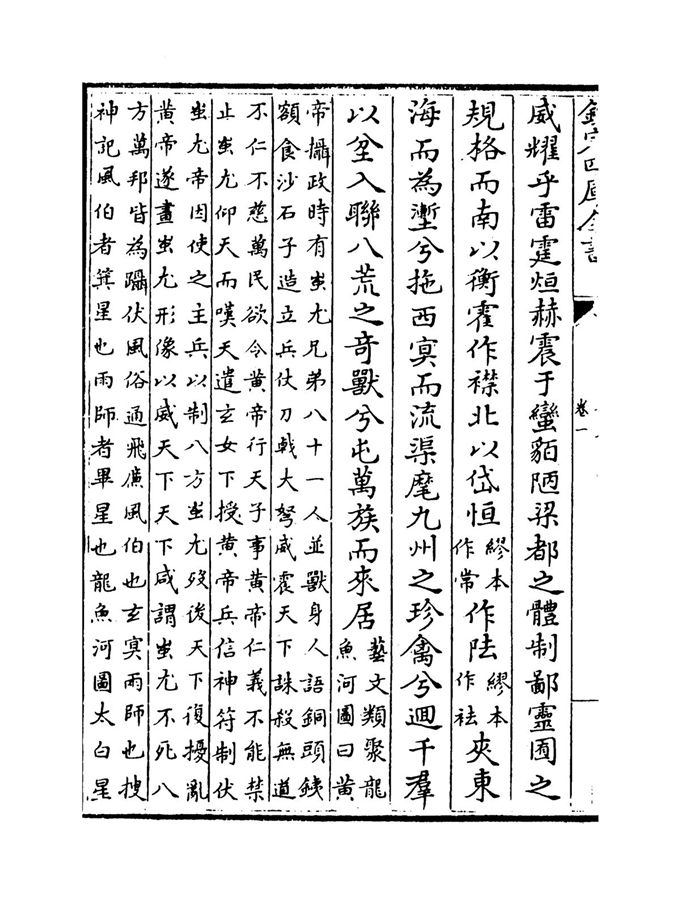 欽定四庫全書
卷一
威耀乎雷霆烜赫震于蠻貊陋梁都之體制鄙靈囿之
規格而南以衡霍作襟北以岱恒繆本作常作阹繆本作祛夾東
海而為壍兮拖西冥而流渠麾九州之珍禽兮迴千羣
以坌入聯八荒之奇獸兮屯萬族而來居藝文類聚龍魚河圖曰黃
帝攝政時有蚩尤兄弟八十一人並獸身人語銅頭鐵
額食沙石子造立兵仗刀戟大弩威震天下誅殺無道
不仁不慈萬民欲令黃帝行天子事黃帝仁義不能禁
止蚩尤仰天而嘆天遣玄女下授黃帝兵信神符制伏
蚩尤帝因使之主兵以制八方蚩尤歿後天下復擾亂
黃帝遂畫蚩尤形像以威天下天下咸謂蚩尤不死八
方萬邦皆為躡伏風俗通飛廉風伯也玄冥雨師也搜
神記風伯者箕星也雨師者畢星也龍魚河圖太白星